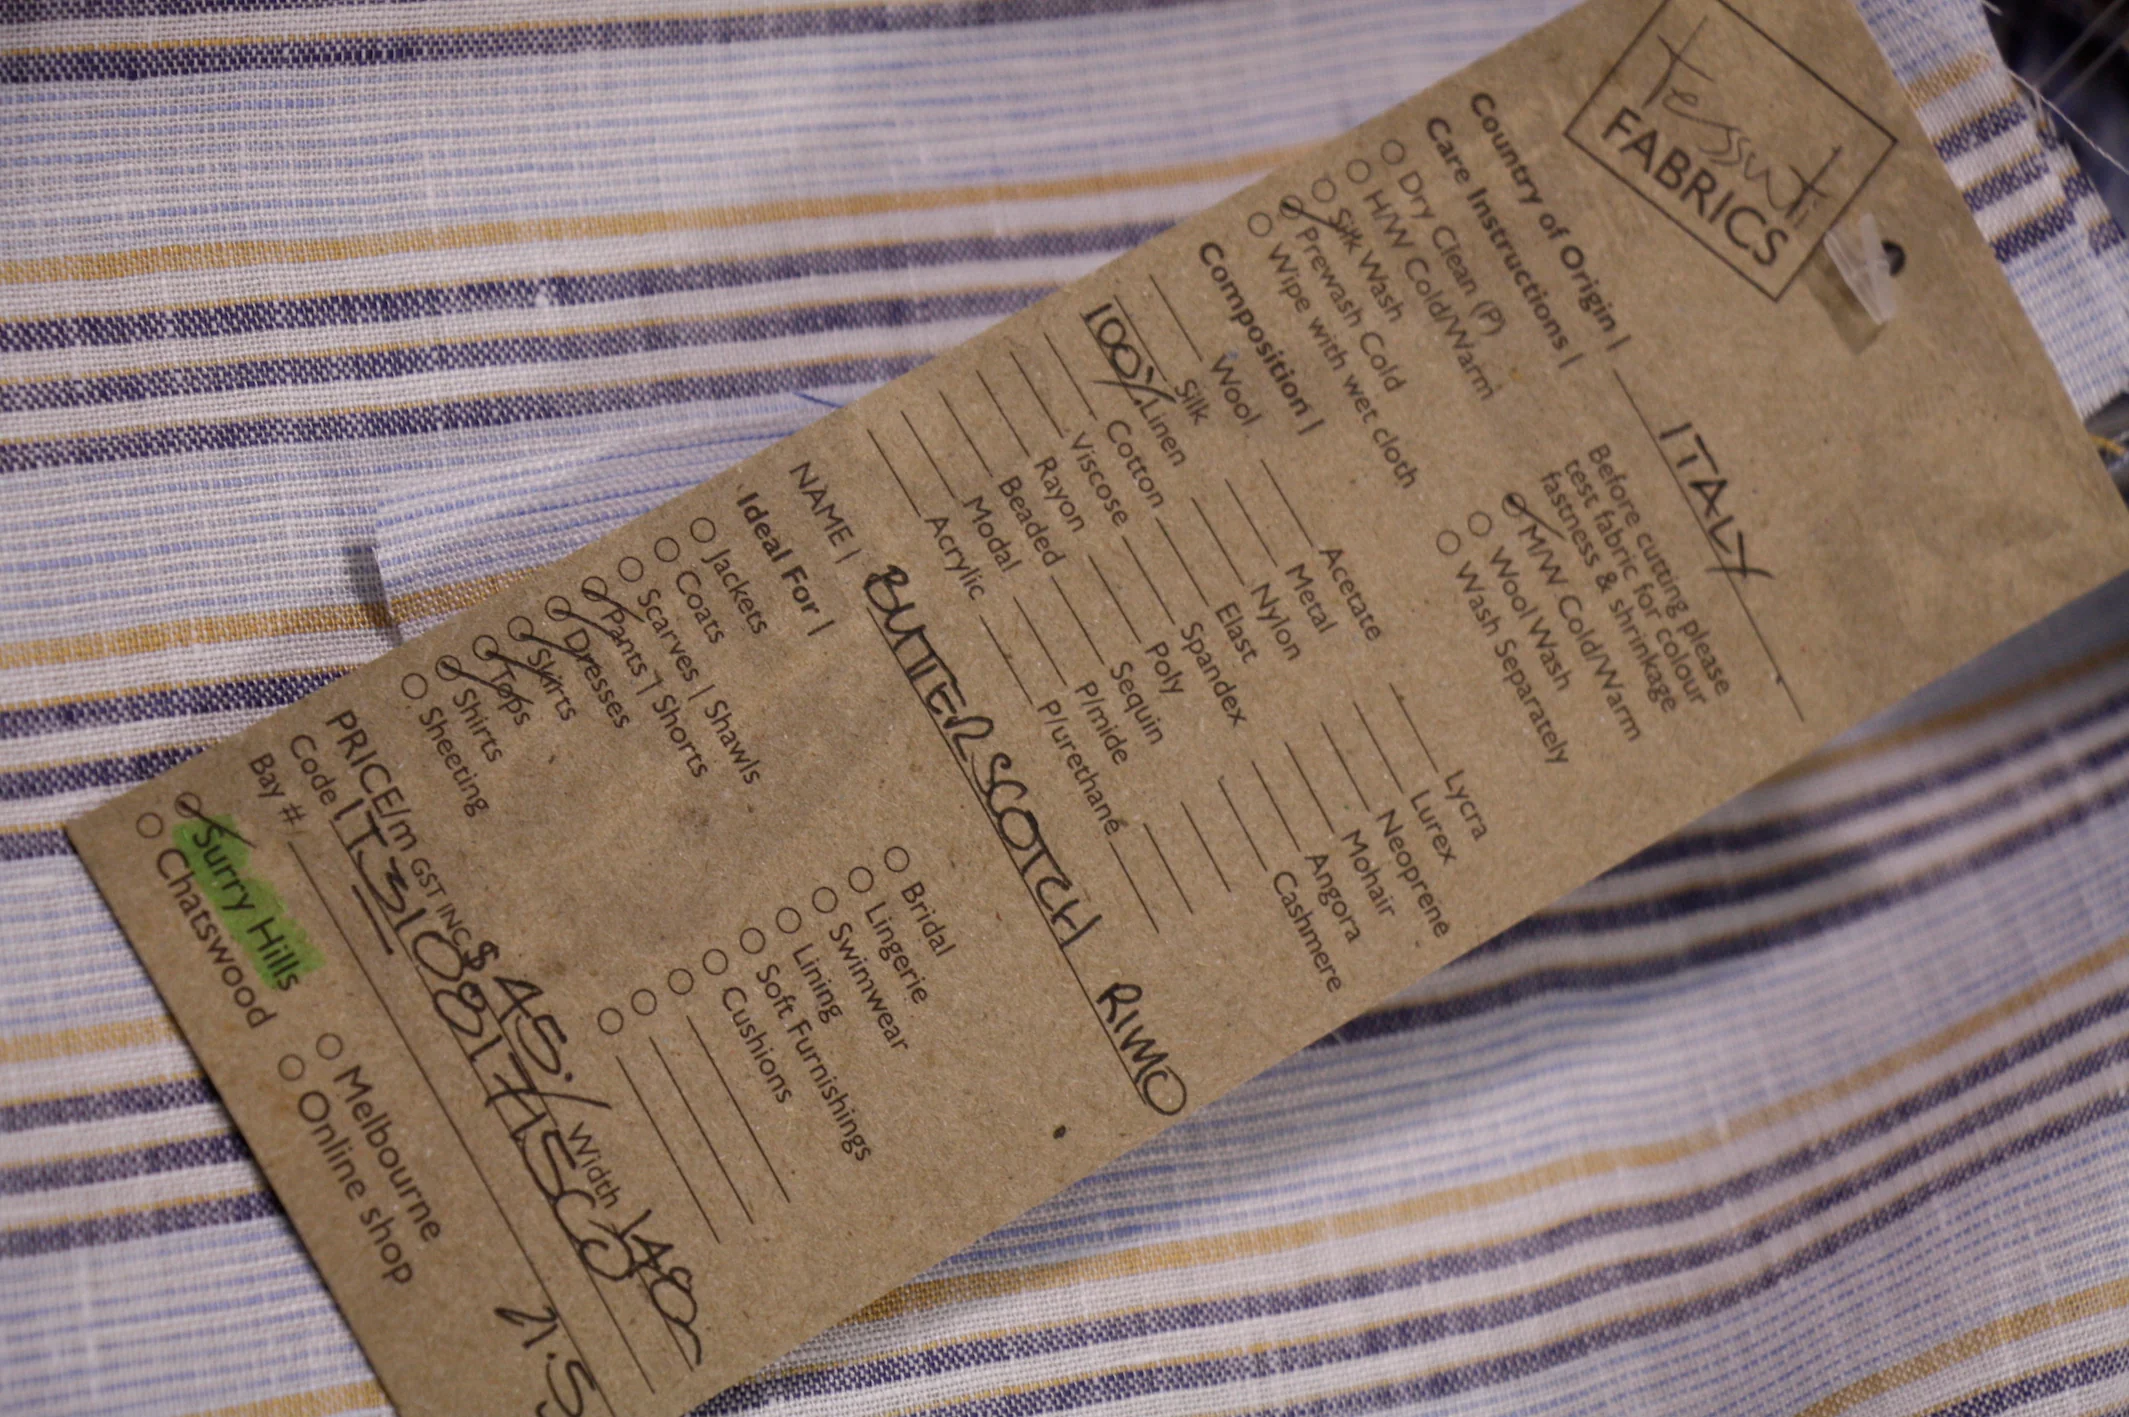 tessuti
FABRICS
Country of Origin | ITALY
Care Instructions |
Before cutting please
test fabric for colour
fastness & shrinkage
Dry Clean (P)
H/W Cold/Warm
Silk Wash
Prewash Cold
Wipe with wet cloth
M/W Cold/Warm
Wool Wash
Wash Separately
Composition |
Wool Acetate Lycra
Silk Metal Lurex
100% Linen Nylon Neoprene
Cotton Elast Mohair
Viscose Spandex Angora
Rayon Poly Cashmere
Beaded Sequin
Modal P/mide
Acrylic P/urethane
NAME | BUTTERSCOTCH RIMO
Ideal For |
Jackets Bridal
Coats Lingerie
Scarves | Shawls Swimwear
Pants | Shorts Lining
Dresses Soft Furnishings
Skirts Cushions
Tops
Shirts
Sheeting
PRICE/m GST INC $ 45./ Width 140
Code
Bay #
Surry Hills Melbourne
Chatswood Online shop